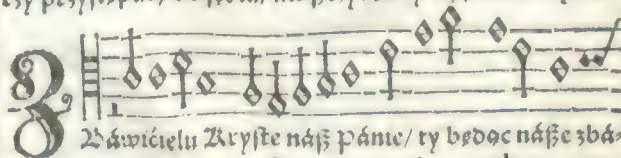 ZBáwićielu Kryste náß pánie/ ty będąc náße zbá-